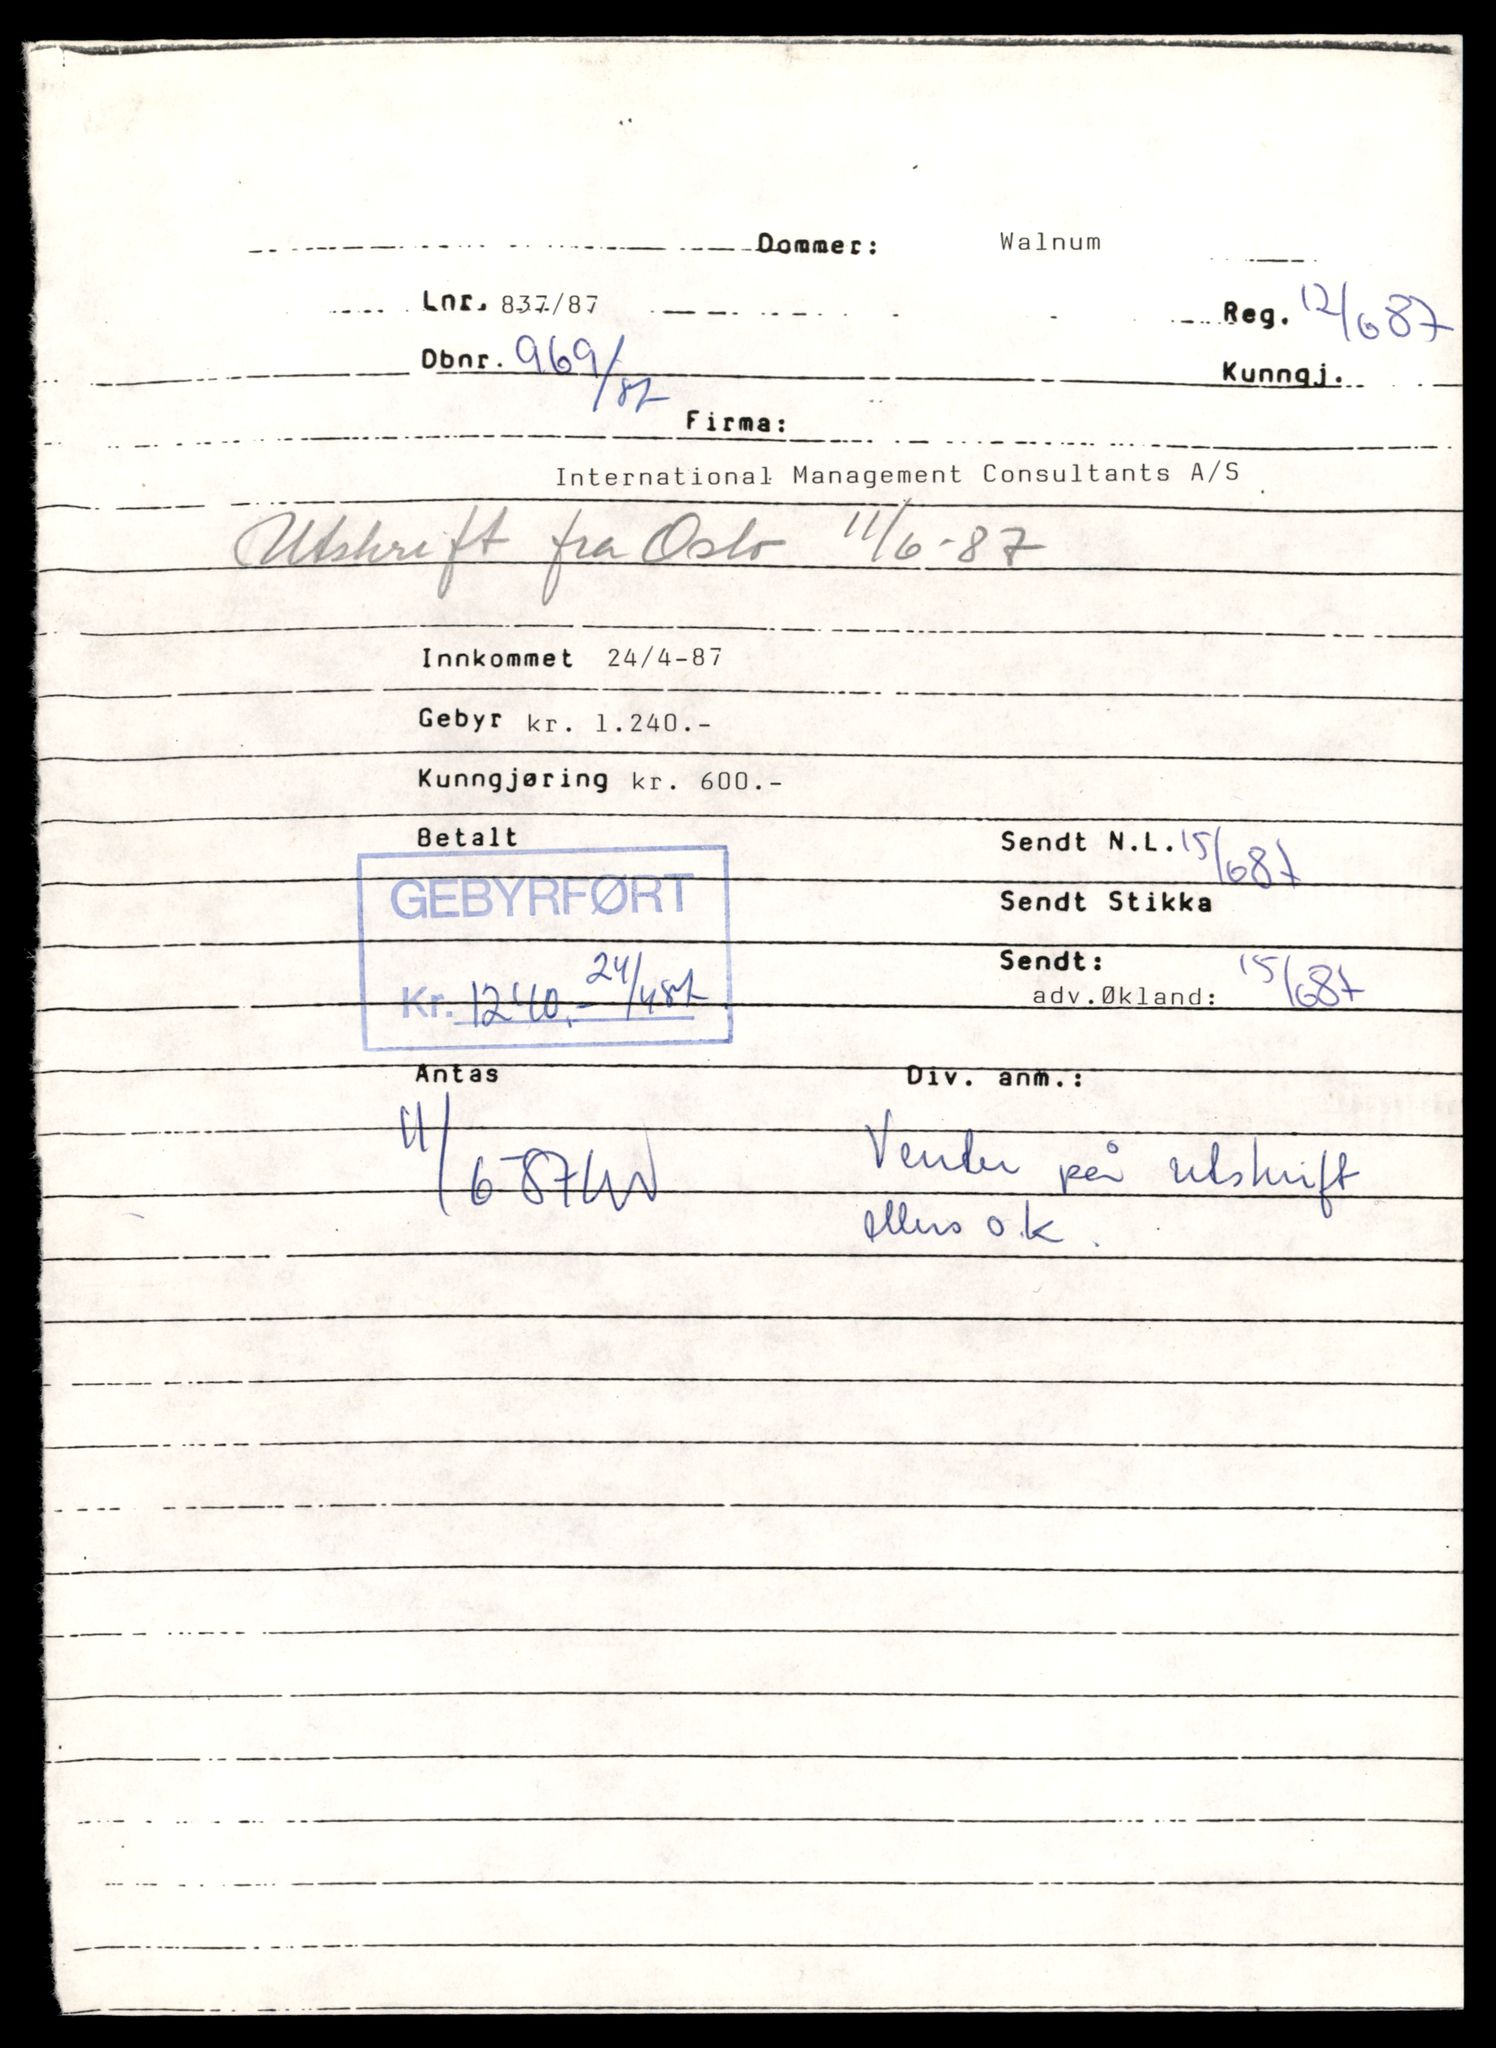 Dommer: Walnum
Lnr. 837/87
Reg. 12/6 87
Dbnr. 969/87
Kunngj.
Firma:
International Management Consultants A/S
Utskrift fra Oslo 11/6-87
Innkommet 24/4-87
Gebyr kr. 1.240.-
Kunngjøring kr. 600.-
Betalt
Sendt N.L. 15/6 87
GEBYRFØRT
Sendt Stikka
Kr. 1240,- 24/4 87
Sendt: 15/6 87
adv.Økland:
Antas
Div. anm.:
11/6-87
Venter på utskrift
ellers o.k.